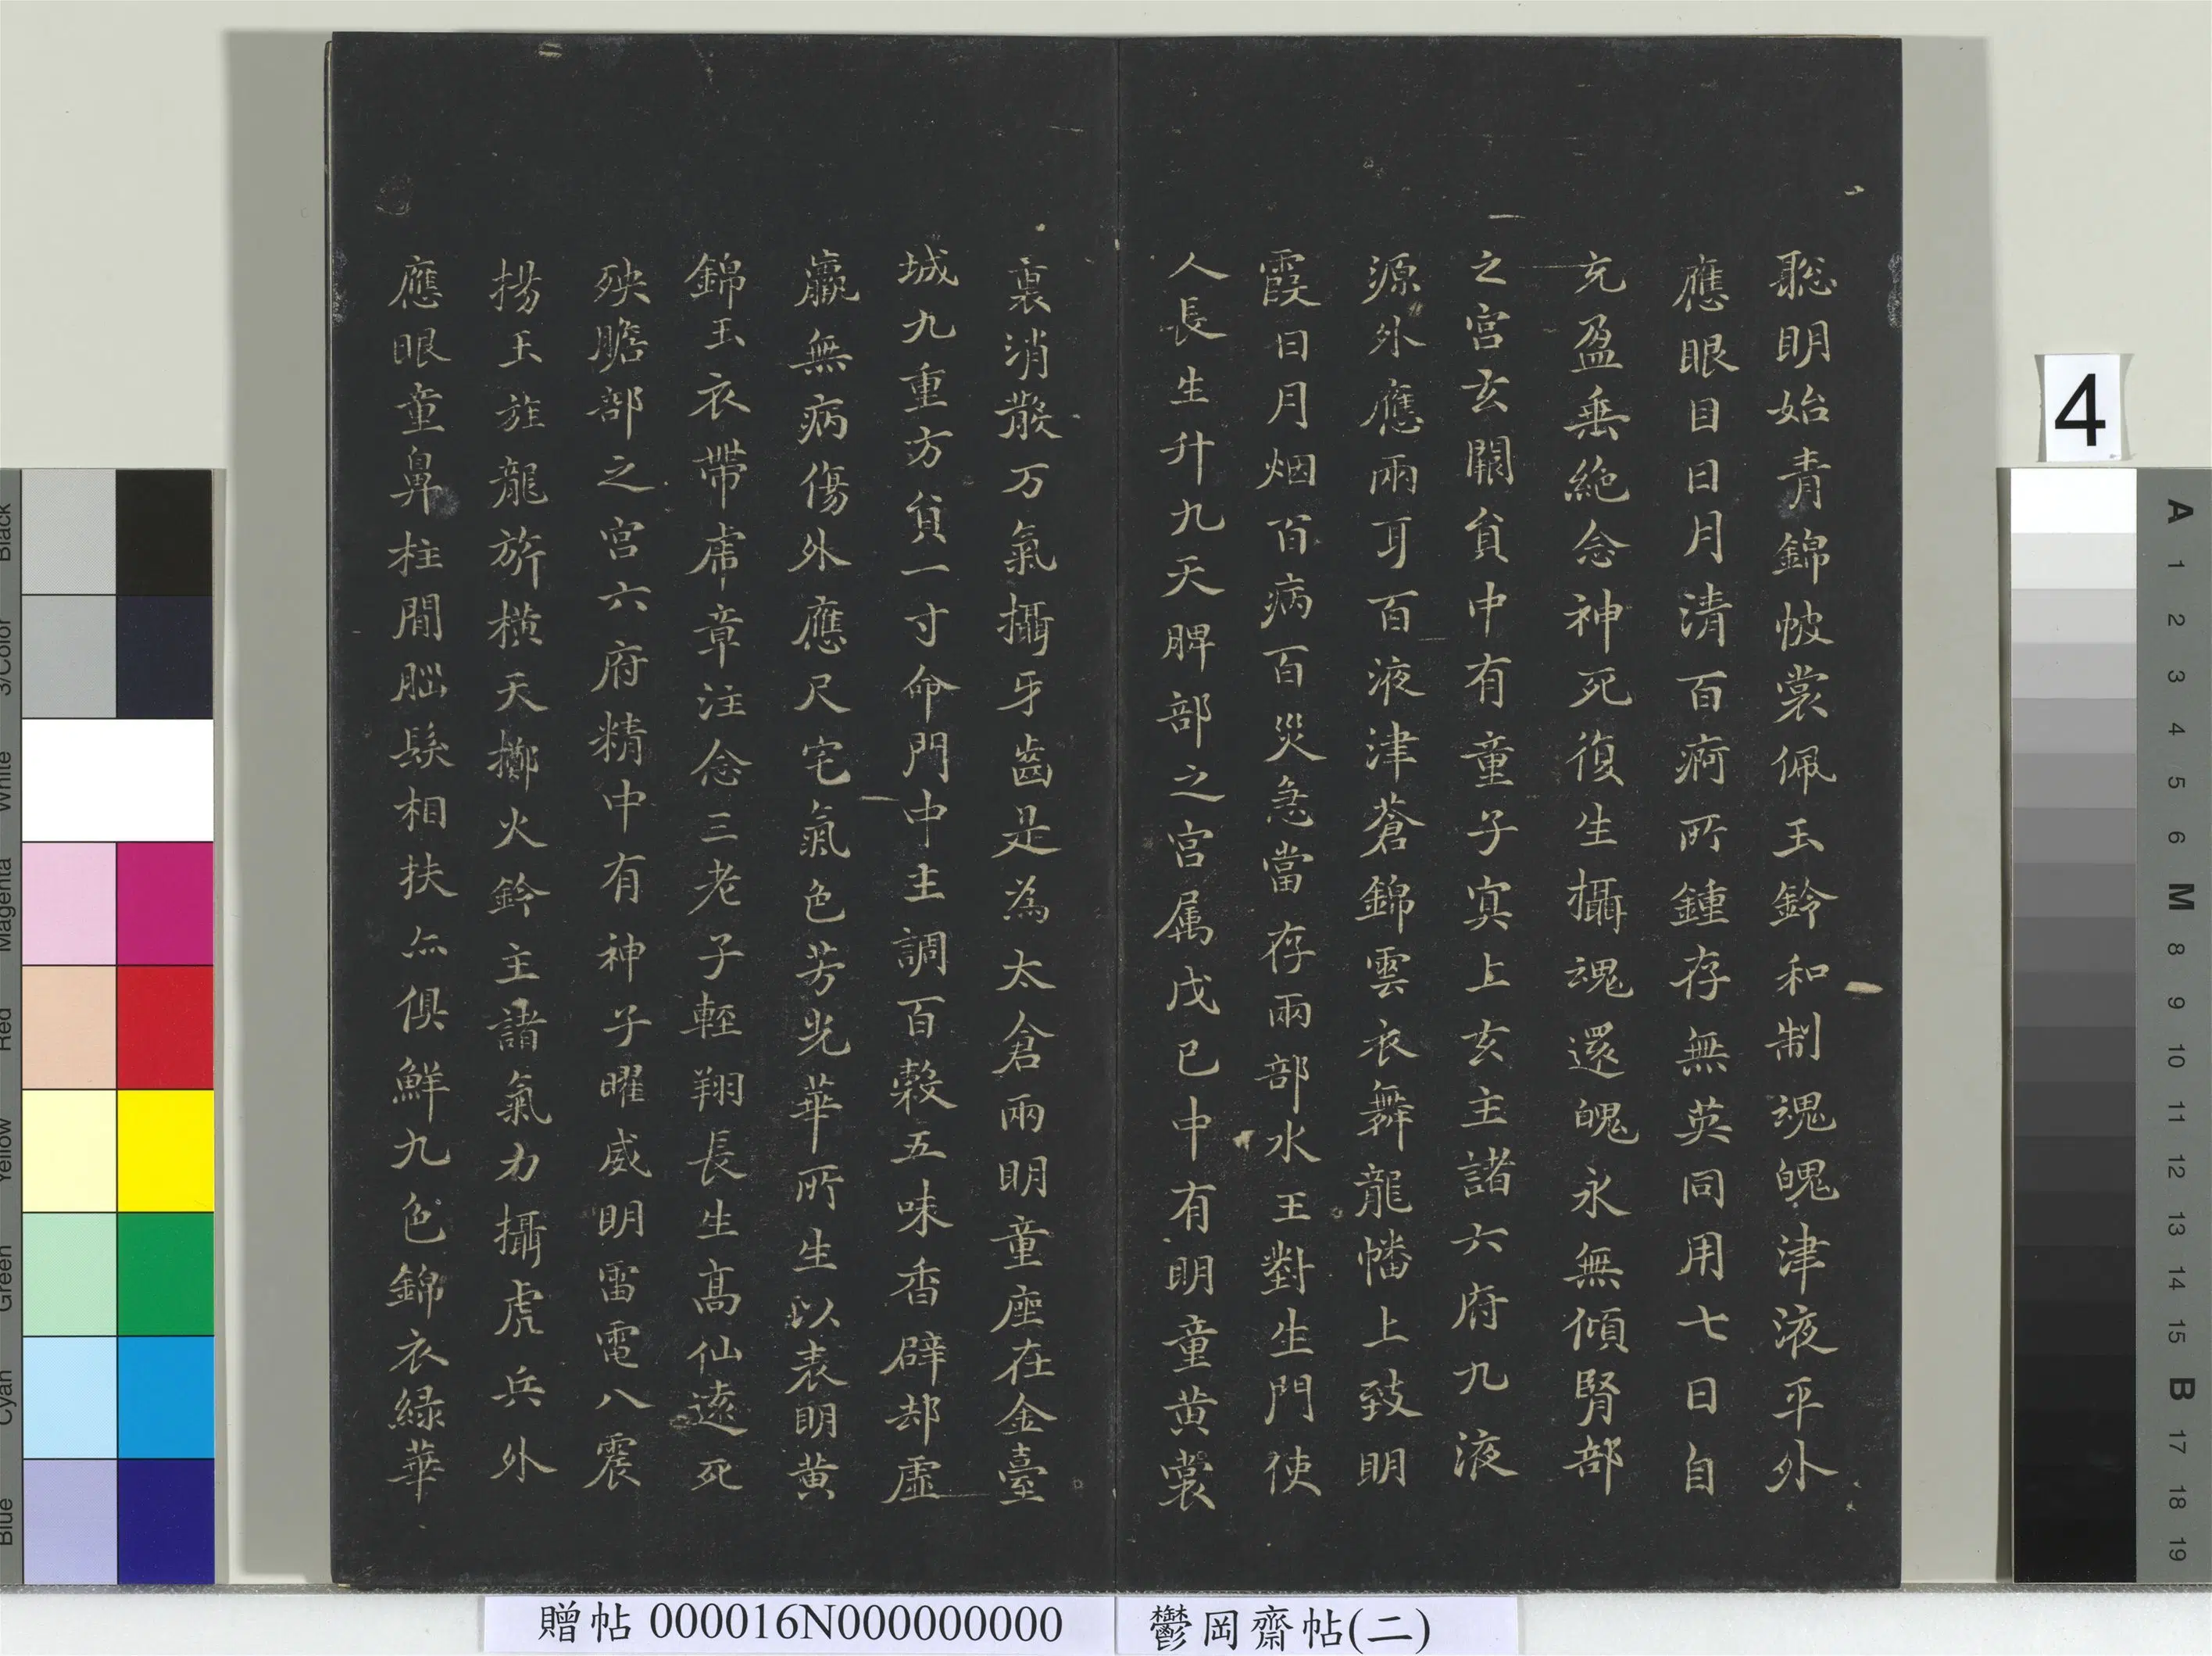 聡明始青錦帔裳佩玉鈴和制魂魄津液平外
應眼目日月清百痾所鍾存無英同用七日自
充盈垂絶念神死復生攝魂還魄永無傾腎部
之宫玄關負中有童子㝠上玄主諸六府九液
源外應兩耳百液津蒼錦雲衣舞龍幡上致明
霞日月烟百病百災急當存兩部水王對生門使
人長生升九天脾部之宫属戊己中有明童黄裳
裏消散万氣攝牙齒是為太倉兩明童座在金臺
城九重方負一寸命門中主調百穀五味香辟却虚
羸無病傷外應尺宅氣色芳光華所生以表明黄
錦玉衣帶虎章注念三老子輕翔長生髙仙遠死
殃膽部之宫六府精中有神子曜威明雷電八震
揚玉旌龍旂横天擲火鈴主諸氣力攝虎兵外
應眼童鼻柱間𦛁髮相扶亦俱鮮九色錦衣緑華
4
Black
3/Color
White
Magenta
Red
Yellow
Green
Cyan
Blue
A 1 2 3 4 5 6 M 8 9 10 11 12 13 14 15 B 17 18 19
贈帖 000016N000000000
鬱岡齋帖(二)